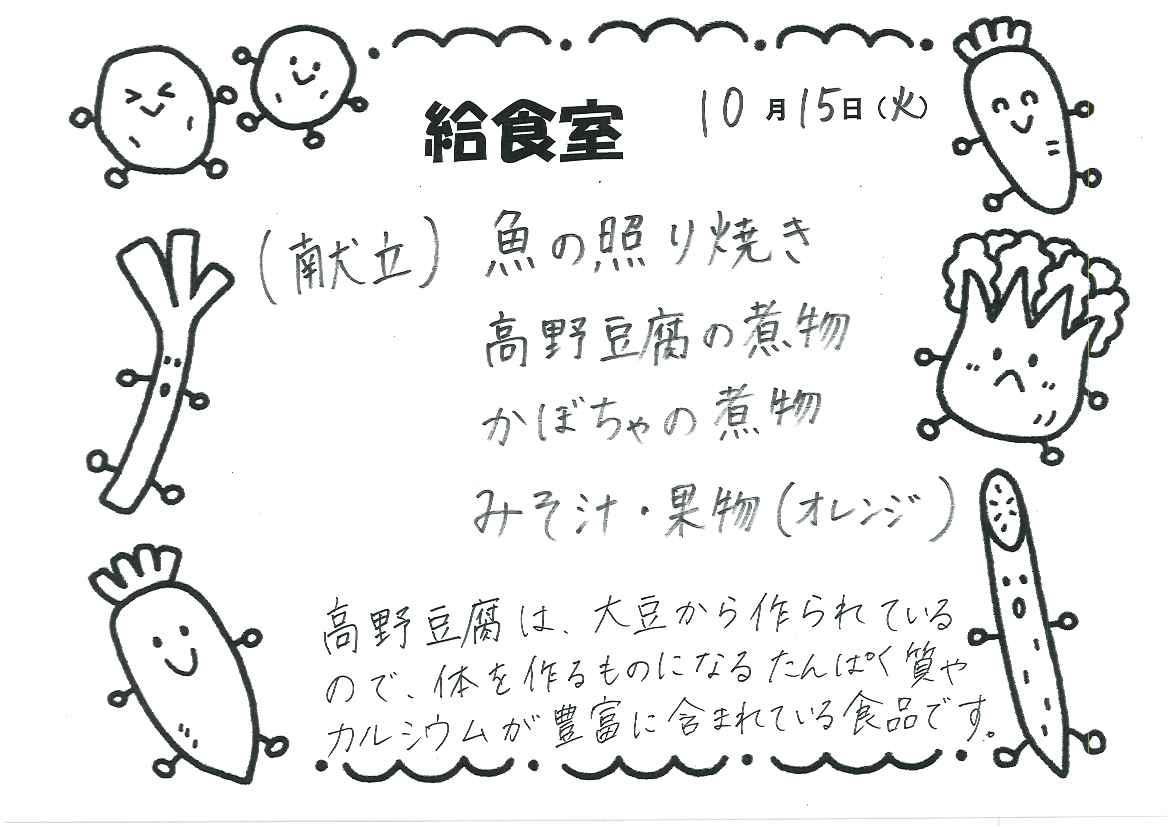 給食室 10月15日(火)
(献立) 魚の照り焼き
高野豆腐の煮物
かぼちゃの煮物
みそ汁・果物(オレンジ)
高野豆腐は、大豆から作られている
ので、体を作るものになるたんぱく質や
カルシウムが豊富に含まれている食品です。